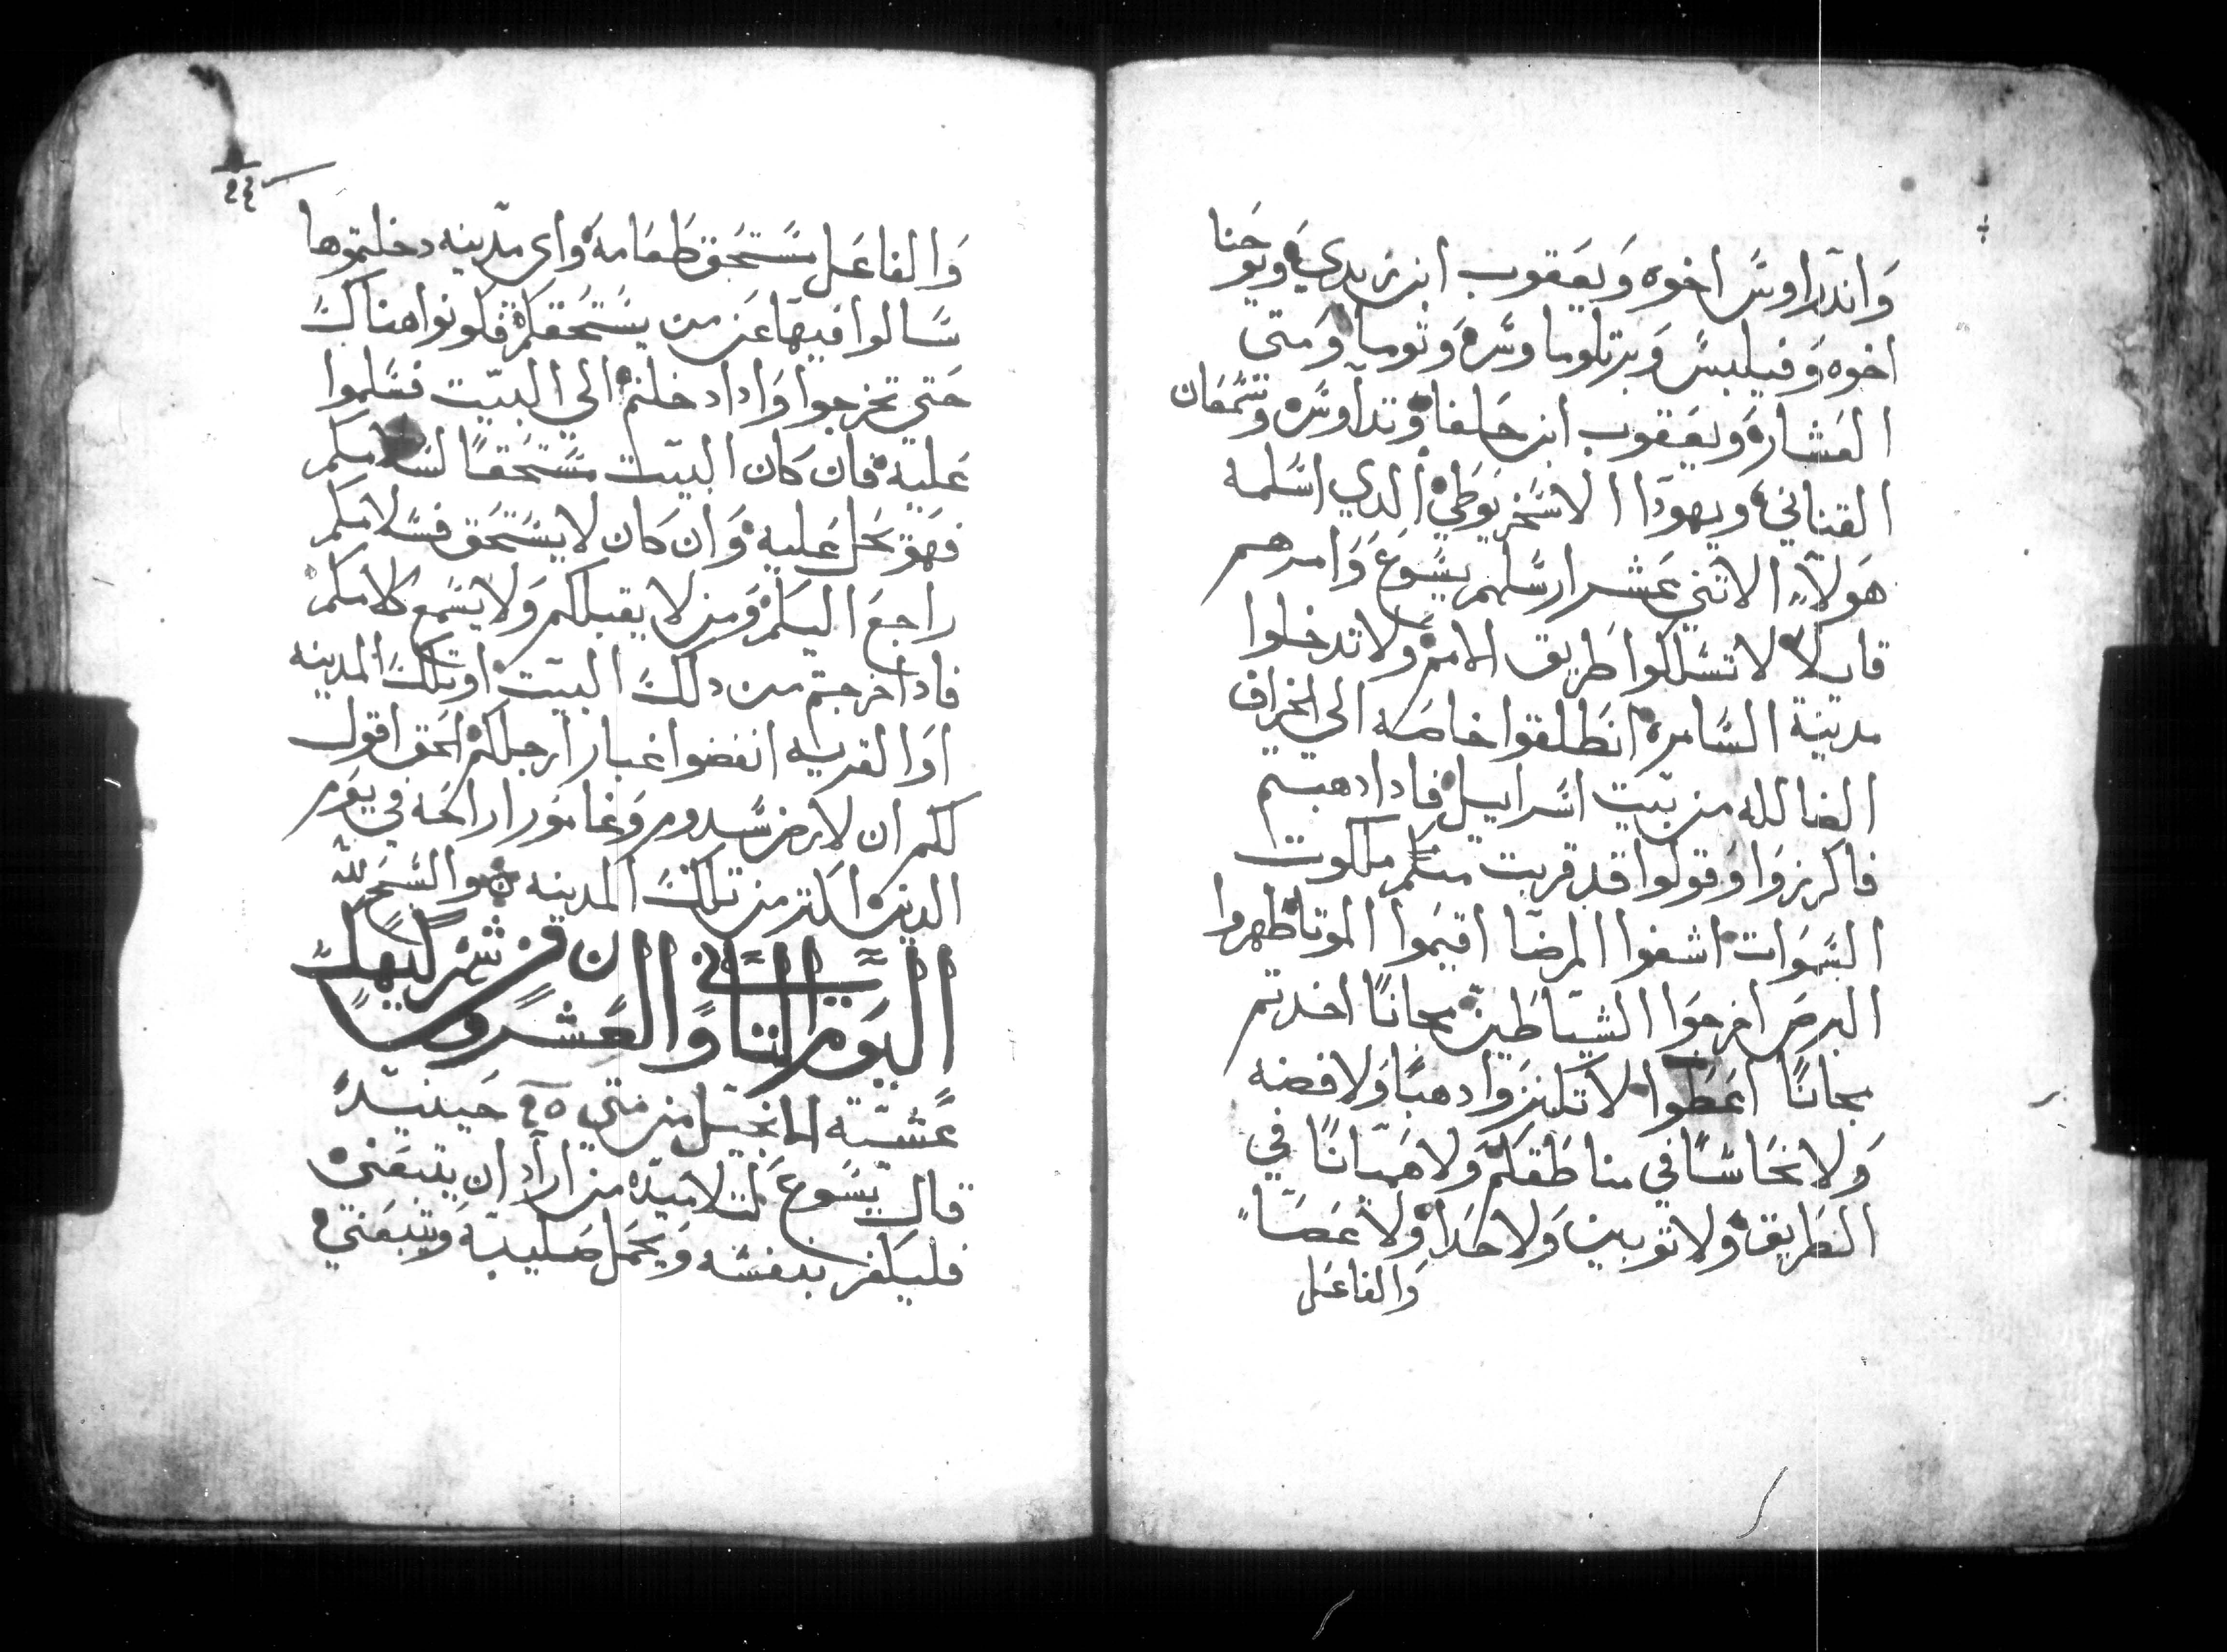 واندراوس اخوه ويعقوب ابن زبدي ويوحنا
اخوه وفيلبس وبرتلوماوس وتوما ومتى
العشار ويعقوب ابن حلفا وتداوس وسمعان
القناني ويهودا الاسخريوطي الدي اسلمه
هولاء الاتني عشر ارسلهم يسوع وامرهم
قايلا لا تسلكوا طريق الامم ولا تدخلوا
مدينة السامره انطلقوا خاصه الى الخراف
الضالله من بيت اسراييل فادا دهبتم
فاكرزوا وقولوا قد قربت منكم ملكوت
السموات اشفوا المرضا اقيموا الموتا طهروا
البرص اخرجوا الشياطين مجانا اخدتم
مجانا اعطوا لا تكنزوا دهبا ولا فضه
ولا نحاسا في مناطقكم ولا هميانا في
الطريق ولا توبين ولا حدا ولا عصا
والفاعل
٢٤
والفاعل مستحق طعامه واي مدينه دخلتموها
سالوا فيها عن من يستحقكم فكونوا هناك
حتي تخرجوا وادا دخلتم الي البيت فسلموا
عليه فان كان البيت مستحقا لسلامكم
فهو يحل عليه وان كان لا يستحق فسلامكم
راجع اليكم ومن لا يقبلكم ولا يسمع كلامكم
فادا خرجتم من دلك البيت او تلك المدينه
او القريه انفضوا غبار ارجلكم الحق اقول
لكم ان لارض سدوم وغامورا راحه في يوم
الدين اكتر من تلك المدينه والسبح لله
اليوم التاني والعشرون من شهر كيهك
عشية الانجيل من متي حينيد
قال يسوع لتلاميده من اراد ان يتبعني
فليكفر بنفسه ويحمل صليبه ويتبعني